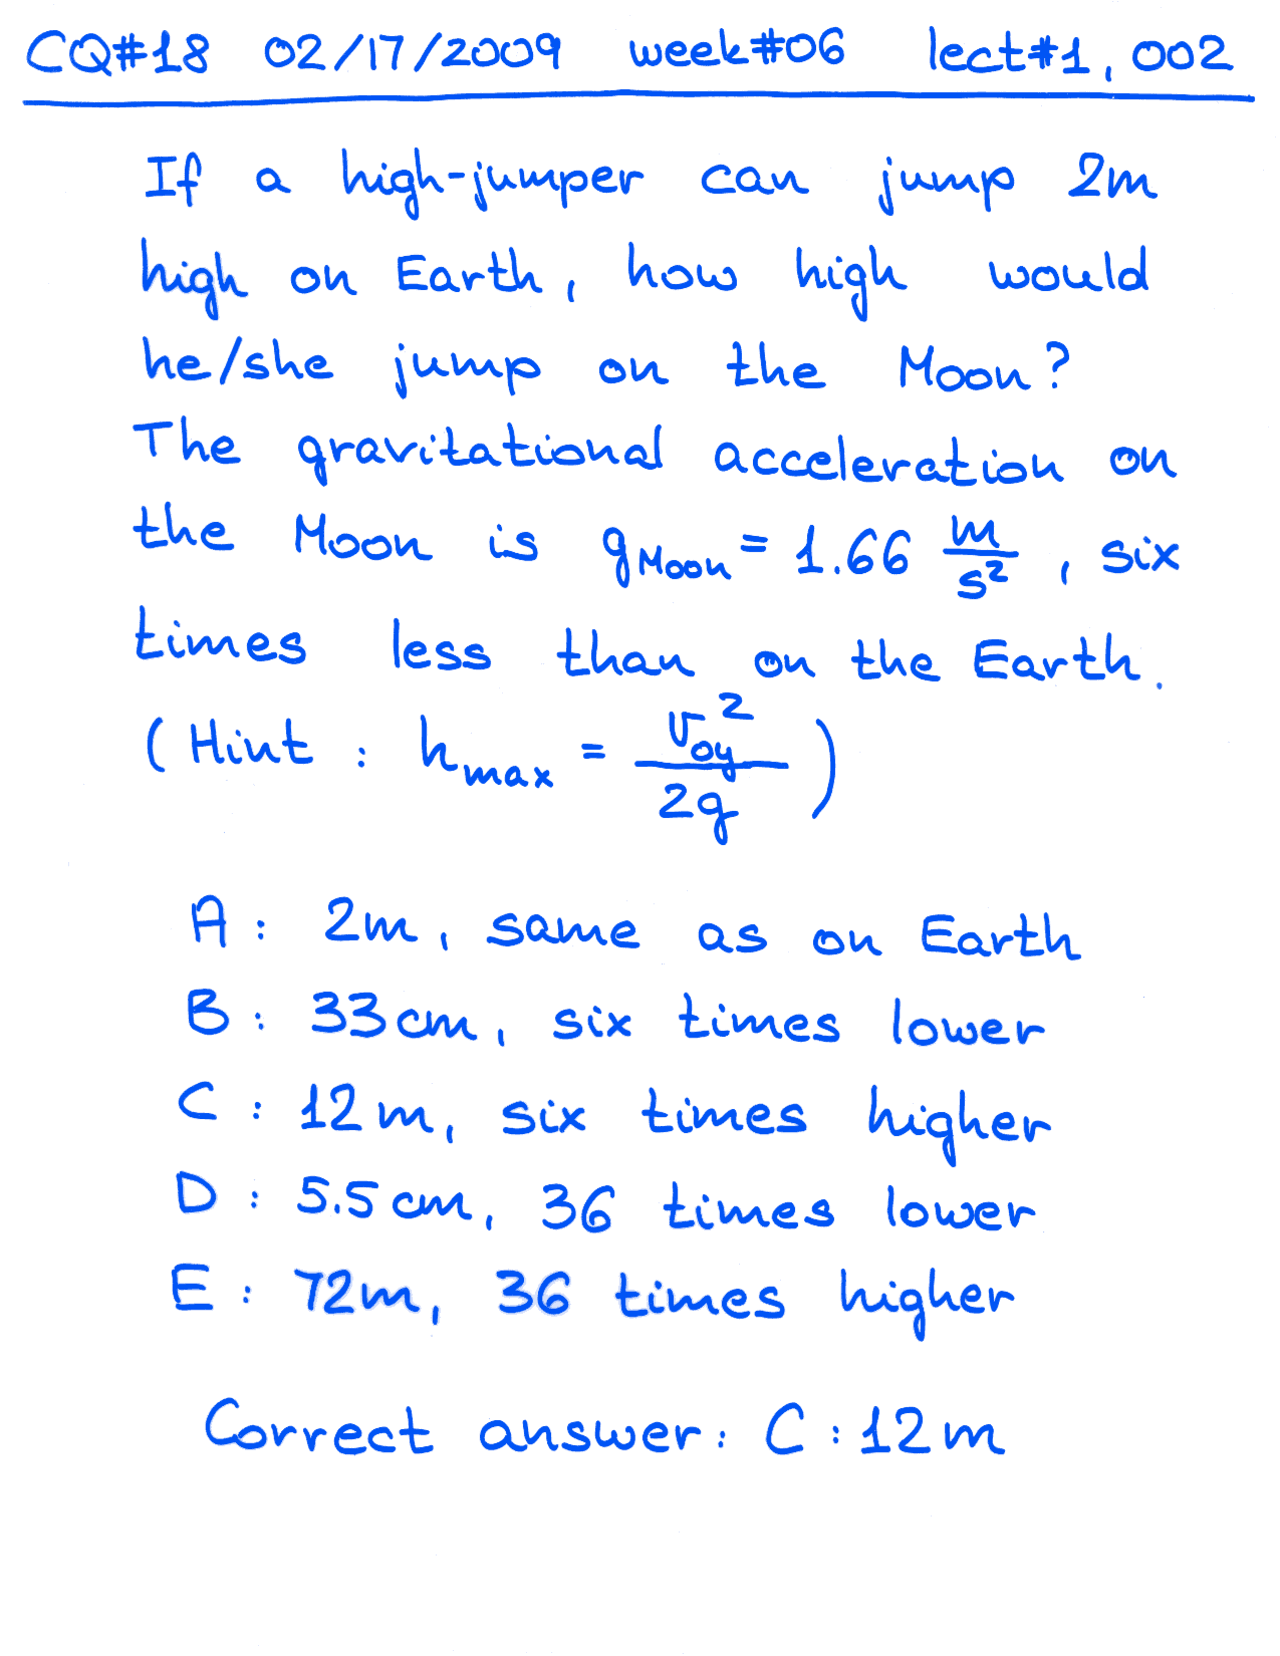 CQ#18 02/17/2009 week#06 lect#1, 002
If a high-jumper can jump 2m
high on Earth, how high would
he/she jump on the Moon?
The gravitational acceleration on
the Moon is g_Moon = 1.66 m/s², six
times less than on the Earth.
(Hint : h_max = v_oy² / 2g)
A : 2m, same as on Earth
B : 33cm, six times lower
C : 12m, six times higher
D : 5.5cm, 36 times lower
E : 72m, 36 times higher
Correct answer: C : 12m